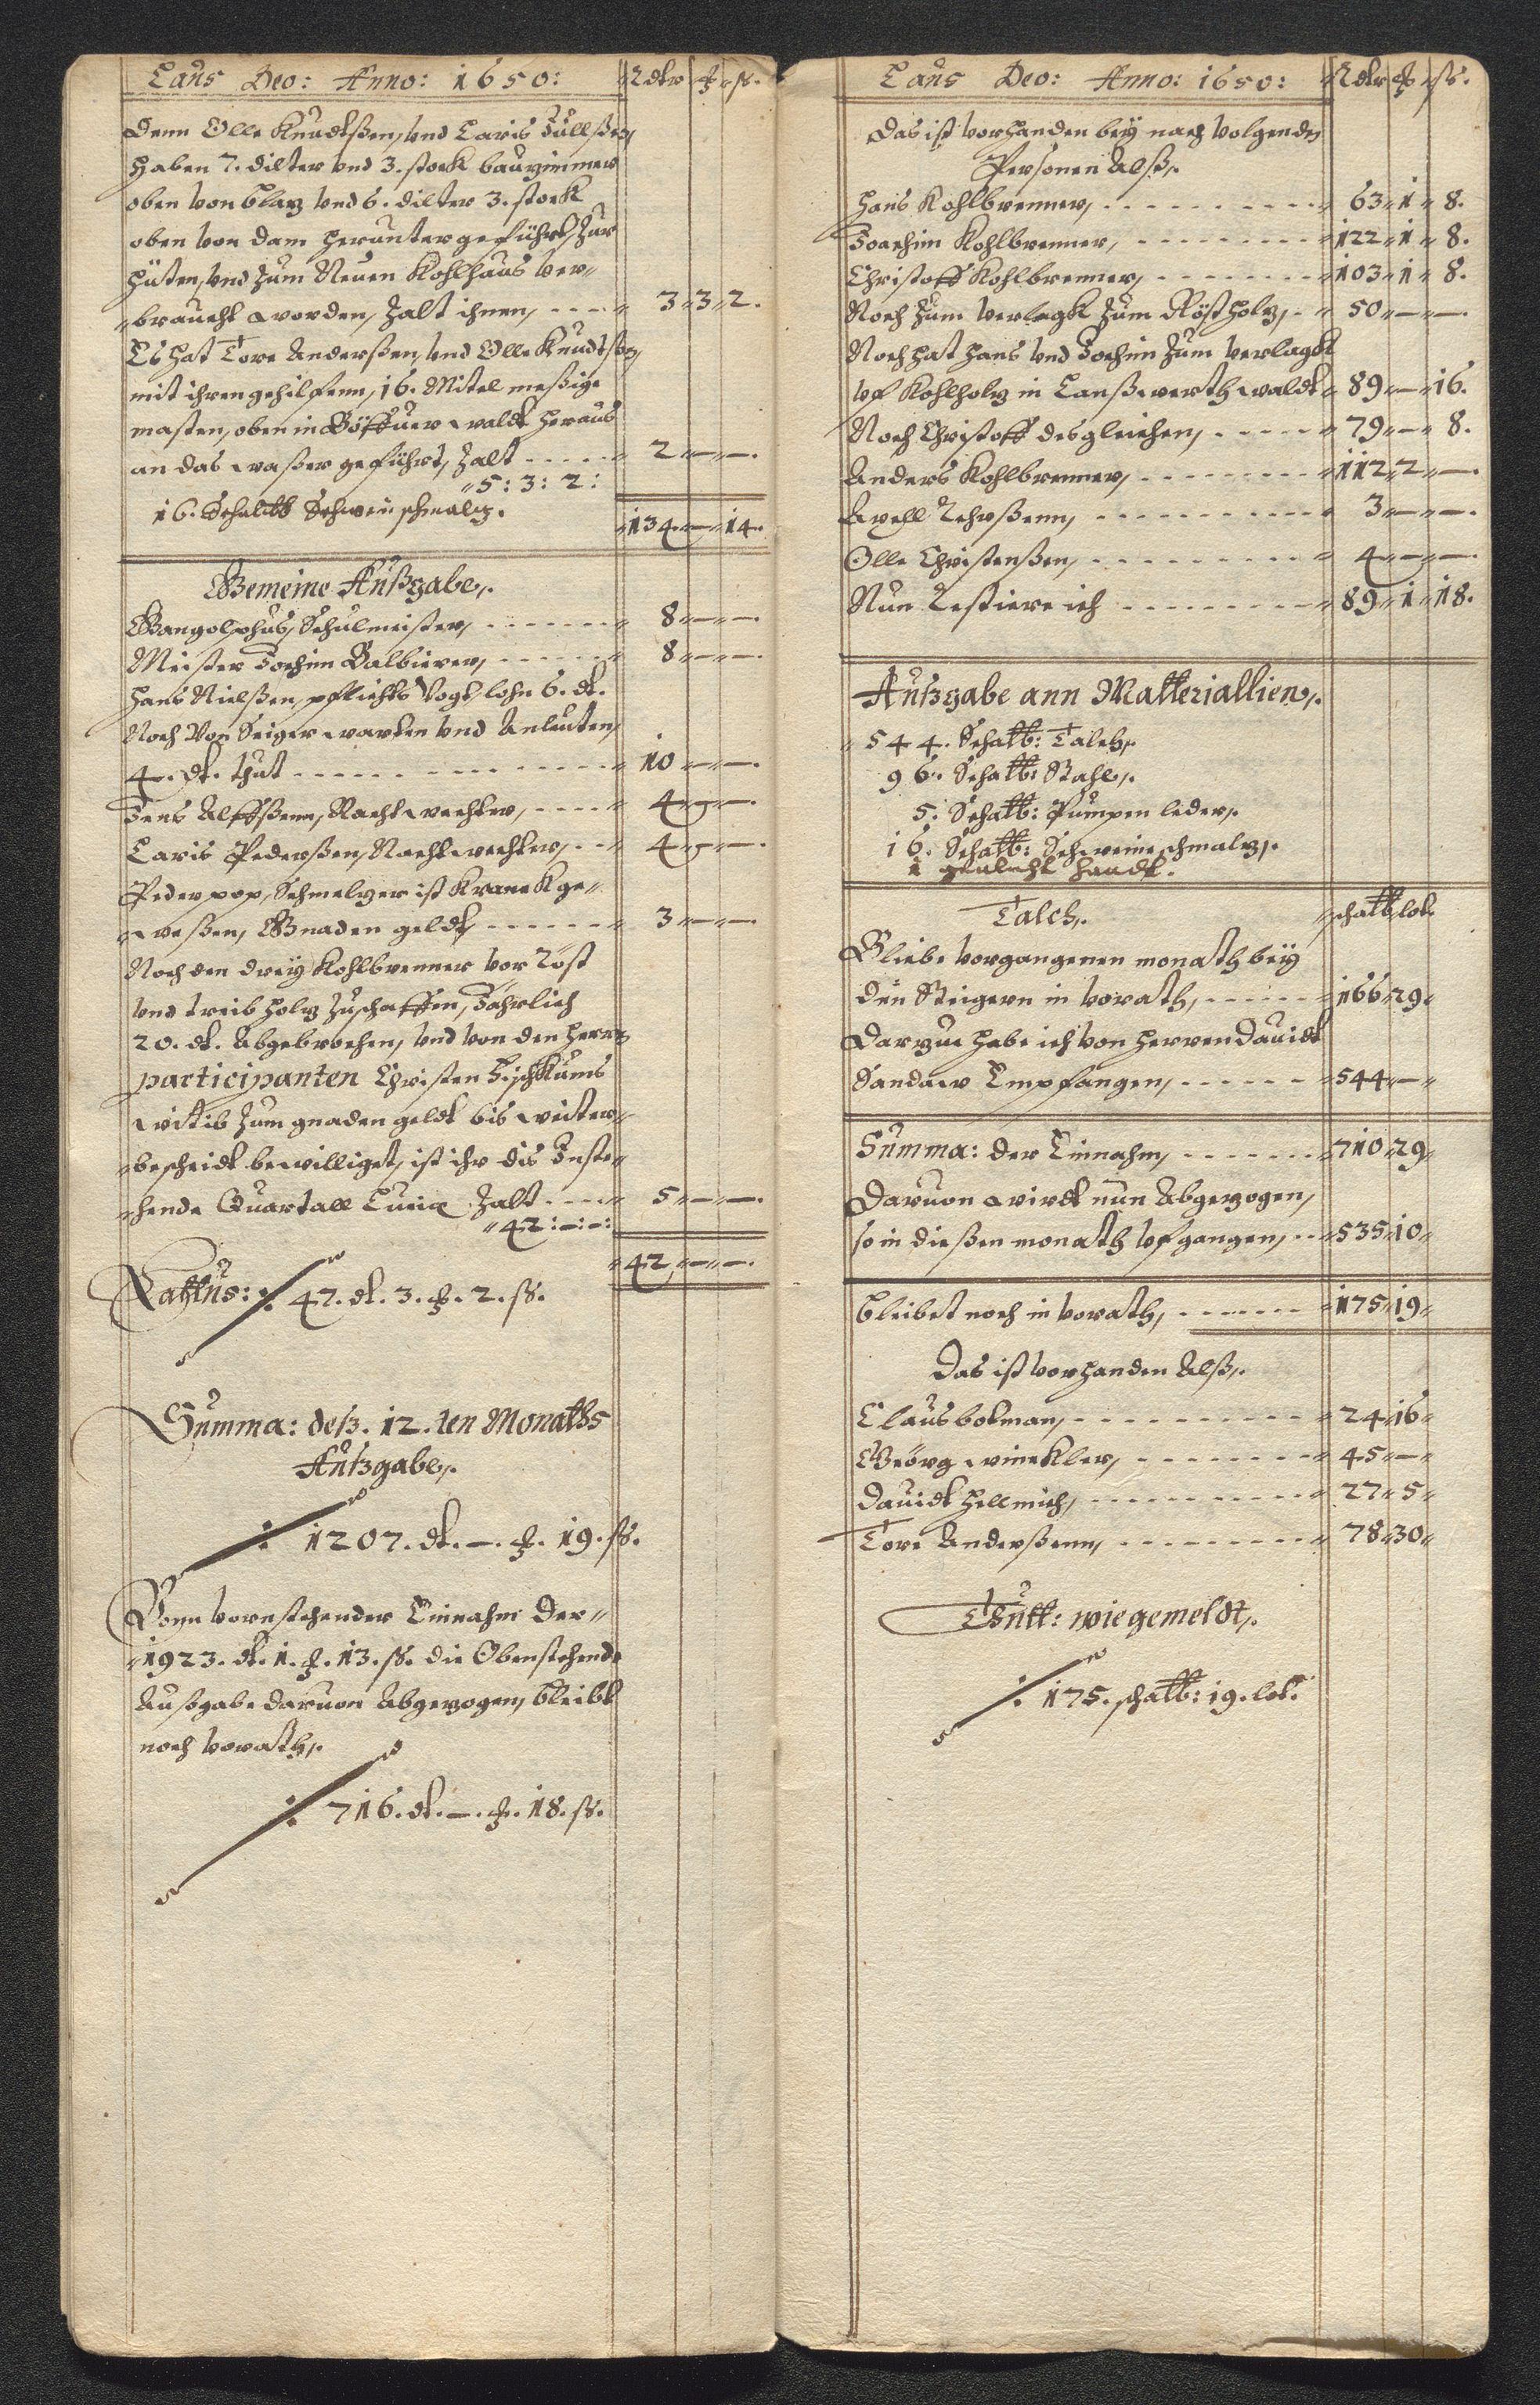 Laus Deo: Anno: 1650: Rdlr ₰ ß.
Denn Olle Knudtßen, vnd Laris Jullßen,
haben 7. dilter vnd 3. stock bauzimmer
oben von Plaz vnd 6. dilter 3. stock
oben von dam herunter geführt, zur
Hüten, vnd zum Neuen Kohlhaus ver"
"braucht worden, zalt ihnen, - - - - " 3 " 3 " 2.
Es hat Tore Anderßen, vnd Olle Knudtßen,
mit ihren gehilfenn, 16. Mitel meßige
masten, oben in waldt heraus
an das waßer geführt, zalt - - - - - " 2 " — " —.
" 5 : 3 : 2 :
16. Schaltt Schwein schmalz.
" 134 " — " 14.
Gemeine Außgabe,.
Gangolphus, Schulmeister, - - - - - - - " 8 " — " —.
Meister Jochim Balbierer, - - - - - - " 8 " — " —.
Hans Nielßen, pflichts Vogt lohn 6. dl.
Noch Von Seiger warten vnd Anleuten,
4. dl. thut - - - - - - - - - - - - - - " 10 " — " —.
Jens Alffßenn, Nacht wechter, - - - - " 4 " — " —.
Laris Pederßen, Nacht wechter, - - " 4 " — " —.
Peder pop, Schmelzer ist Kranck ge"
"weßen, Gnaden geldt, - - - - - - " 3 " — " —.
Noch den dreÿ Kohlbrenner vor Röst
vnd treib holz zuschaffen, Jährlich
20. dl. Abgebrochen, vnd von den Herrn
participanten Christen
witib zum gnaden geldt bis weiter"
"bescheidt bewilliget, ist ihr dis Inste"
"hende Quartall Luciæ zalt - - - - " 5 " — " —.
" 42 : — : — :
" 42 " — " —.
Lattus: ⁒ 47. dl. 3. ₰. 2. ß.
Summa: deß. 12. ten Monaths
Außgabe,.
⁒ 1207. dl. —. ₰. 19. ß.
Vonn vornstehender Einnahm Der"
"1923. dl. 1. ₰. 13. ß. die Obenstehende
Außgabe daruon Abgezogen, bleibt
noch vorath,.
⁒ 716. dl. —. ₰. 18. ß.
Laus Deo: Anno: 1650: Rdlr ₰ ß.
Das ist vorhanden beÿ nach volgenden
Personen Alß,.
Hans Kohlbrenner, - - - - - - - - - - " 63 " 1 " 8.
Joachim Kohlbrenner, - - - - - - - - - " 122 " 1 " 8.
Christoff Kohlbrenner, - - - - - - - - " 103 " 1 " 8.
Noch zum verlagk zum Röstholz, - " 50 " — " —.
Noch hat Hans vnd Jochim zum verlagk
vf Kohlholz in Lanßwerth waldt " 89 " — " 16.
Noch Christoff desgleichen, - - - - - " 79 " — " 8.
Anders Kohlbrenner, - - - - - - - - - " 112 " 2 " —.
Axell - - - - - - - - - - - - " 3 " — " —.
Olle Christenßen, - - - - - - - - - - " 4 " — " —.
Nun Restiere ich - - - - - - - - - - " 89 " 1 " 18.
Außgabe ann Matteriallien,.
" 544. Schaltt: Talch,.
96. Schaltt: Stahl,.
5. Schaltt: Pumpen leder,.
16. Schaltt: Schweine schmalz,.
1 haudt.
Talch,. " schaltt lot.
Bliebe vorgangenen monath beÿ
den Steigern in vorath, - - - - - - " 166 " 29 "
Darzu habe ich von Herren Dauidt
Sandaw Empfangen, - - - - - - - " 544 " — "
Summa: der Einnahm, - - - - - - - " 710 " 29 "
Daruon wirdt nun Abgezogen,
so in dießen monath vfgangen, - - " 535 " 10 "
bleibet noch in vorath, - - - - - - - " 175 " 19 "
Das ist vorhanden Alß,.
Claus botman, - - - - - - - - - - - " 24 " 16 "
Geörg winckler, - - - - - - - - - " 45 " — "
Dauidt Hellmich, - - - - - - - - - - " 27 " 5 "
Tore Anderßenn, - - - - - - - - - " 78 " 30 "
Thutt: wie gemeldt,.
⁒ 175. schaltt: 19. lot.